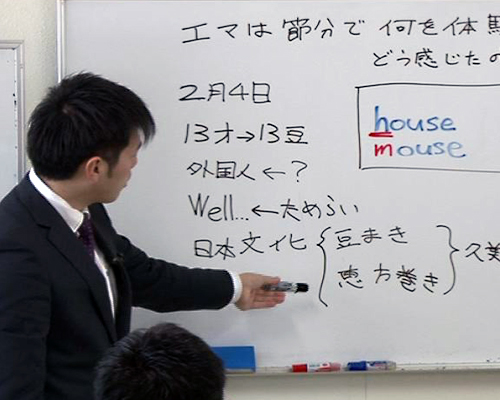 エマは節分で何を体験
どう感じたの
2月4日
house
mouse
13才→13豆
外国人←?
Well...←ためらい
日本文化{豆まき 恵方巻き}久美